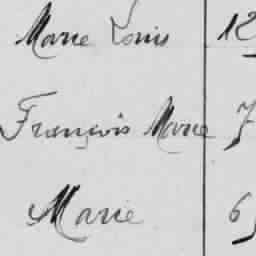 Marie Louis 12
François Marie 7
Marie 6